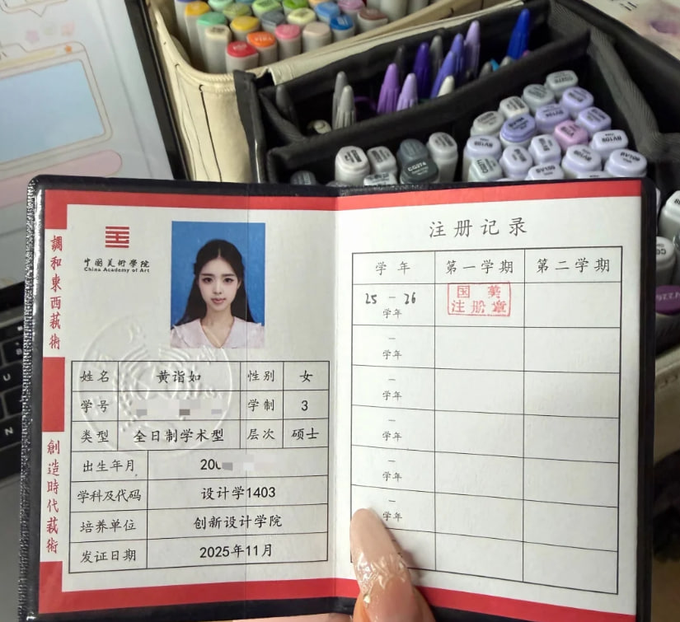 調和東西萩術
創造時代萩術
中国美術學院
China Academy of Art
姓名 黄诣如 性别 女
学号 学制 3
类型 全日制学术型 层次 硕士
出生年月 200
学科及代码 设计学1403
培养单位 创新设计学院
发证日期 2025年11月
注册记录
学年 第一学期 第二学期
25 — 26 学年 国美注册章
— 学年
— 学年
— 学年
— 学年
— 学年
— 学年
CG274
BV108
BV109